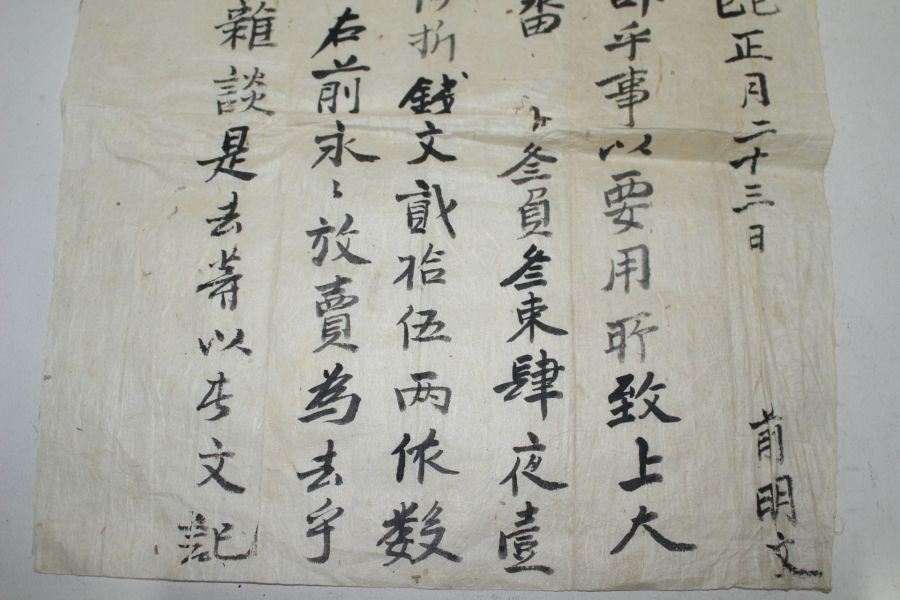 正月二十三日 前明文
乎事以要用所致上大
畓 卜叁負叁束肆夜壹
折錢文貳拾伍兩依數
右前永〻放賣為去乎
雜談是去等以此文記